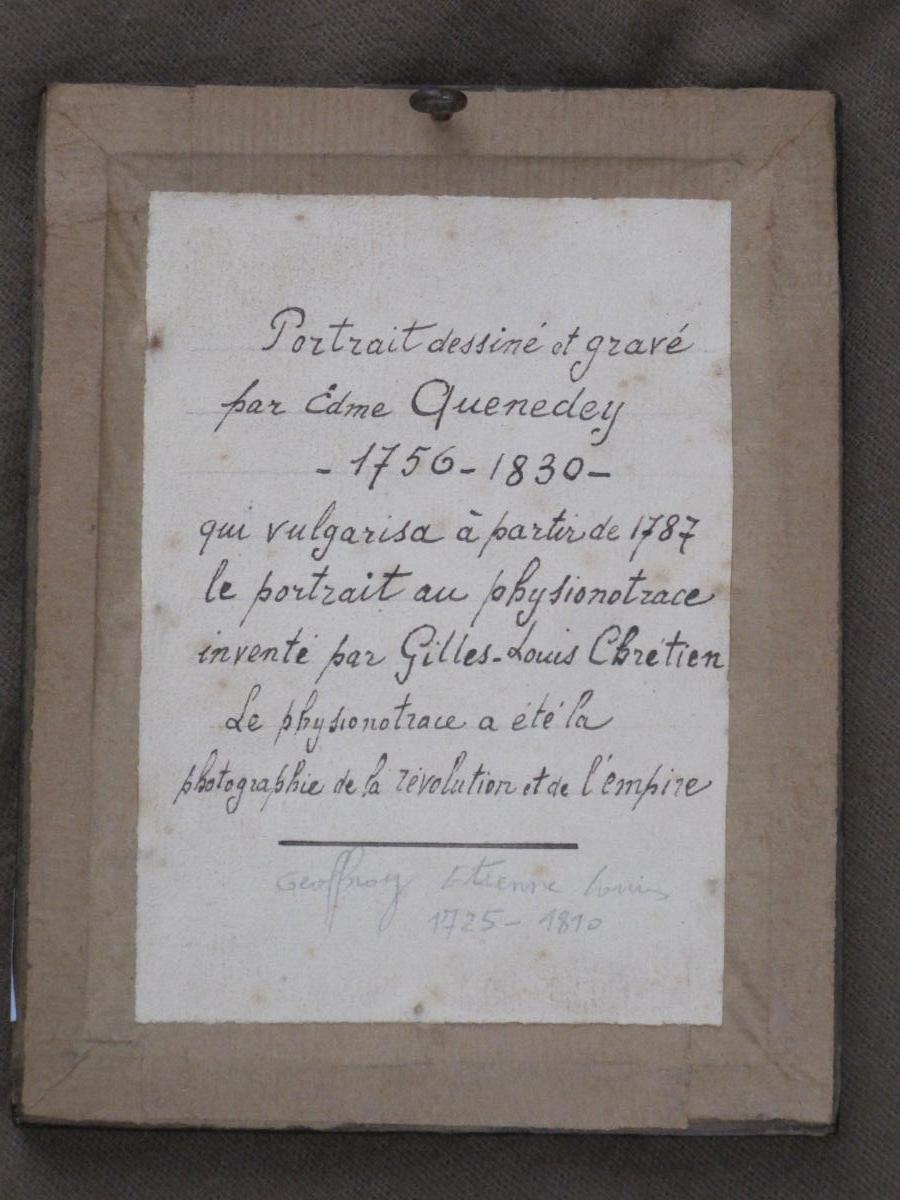 Portrait dessiné et gravé
par Edme Quenedey
- 1756 - 1830 -
qui vulgarisa à partir de 1787
le portrait au physionotrace
inventé par Gilles-Louis Chrétien
Le physionotrace a été la
photographie de la révolution et de l'empire
Geoffroy Etienne Louis
1725 - 1810